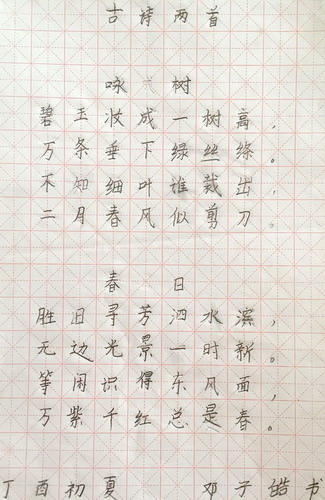 古诗两首
咏 树
碧玉妆成一树高，
万条垂下绿丝绦。
不知细叶谁裁出，
二月春风似剪刀。
春日
胜日寻芳泗水滨，
无边光景一时新。
等闲识得东风面，
万紫千红总是春。
丁酉初夏 邓子皓书